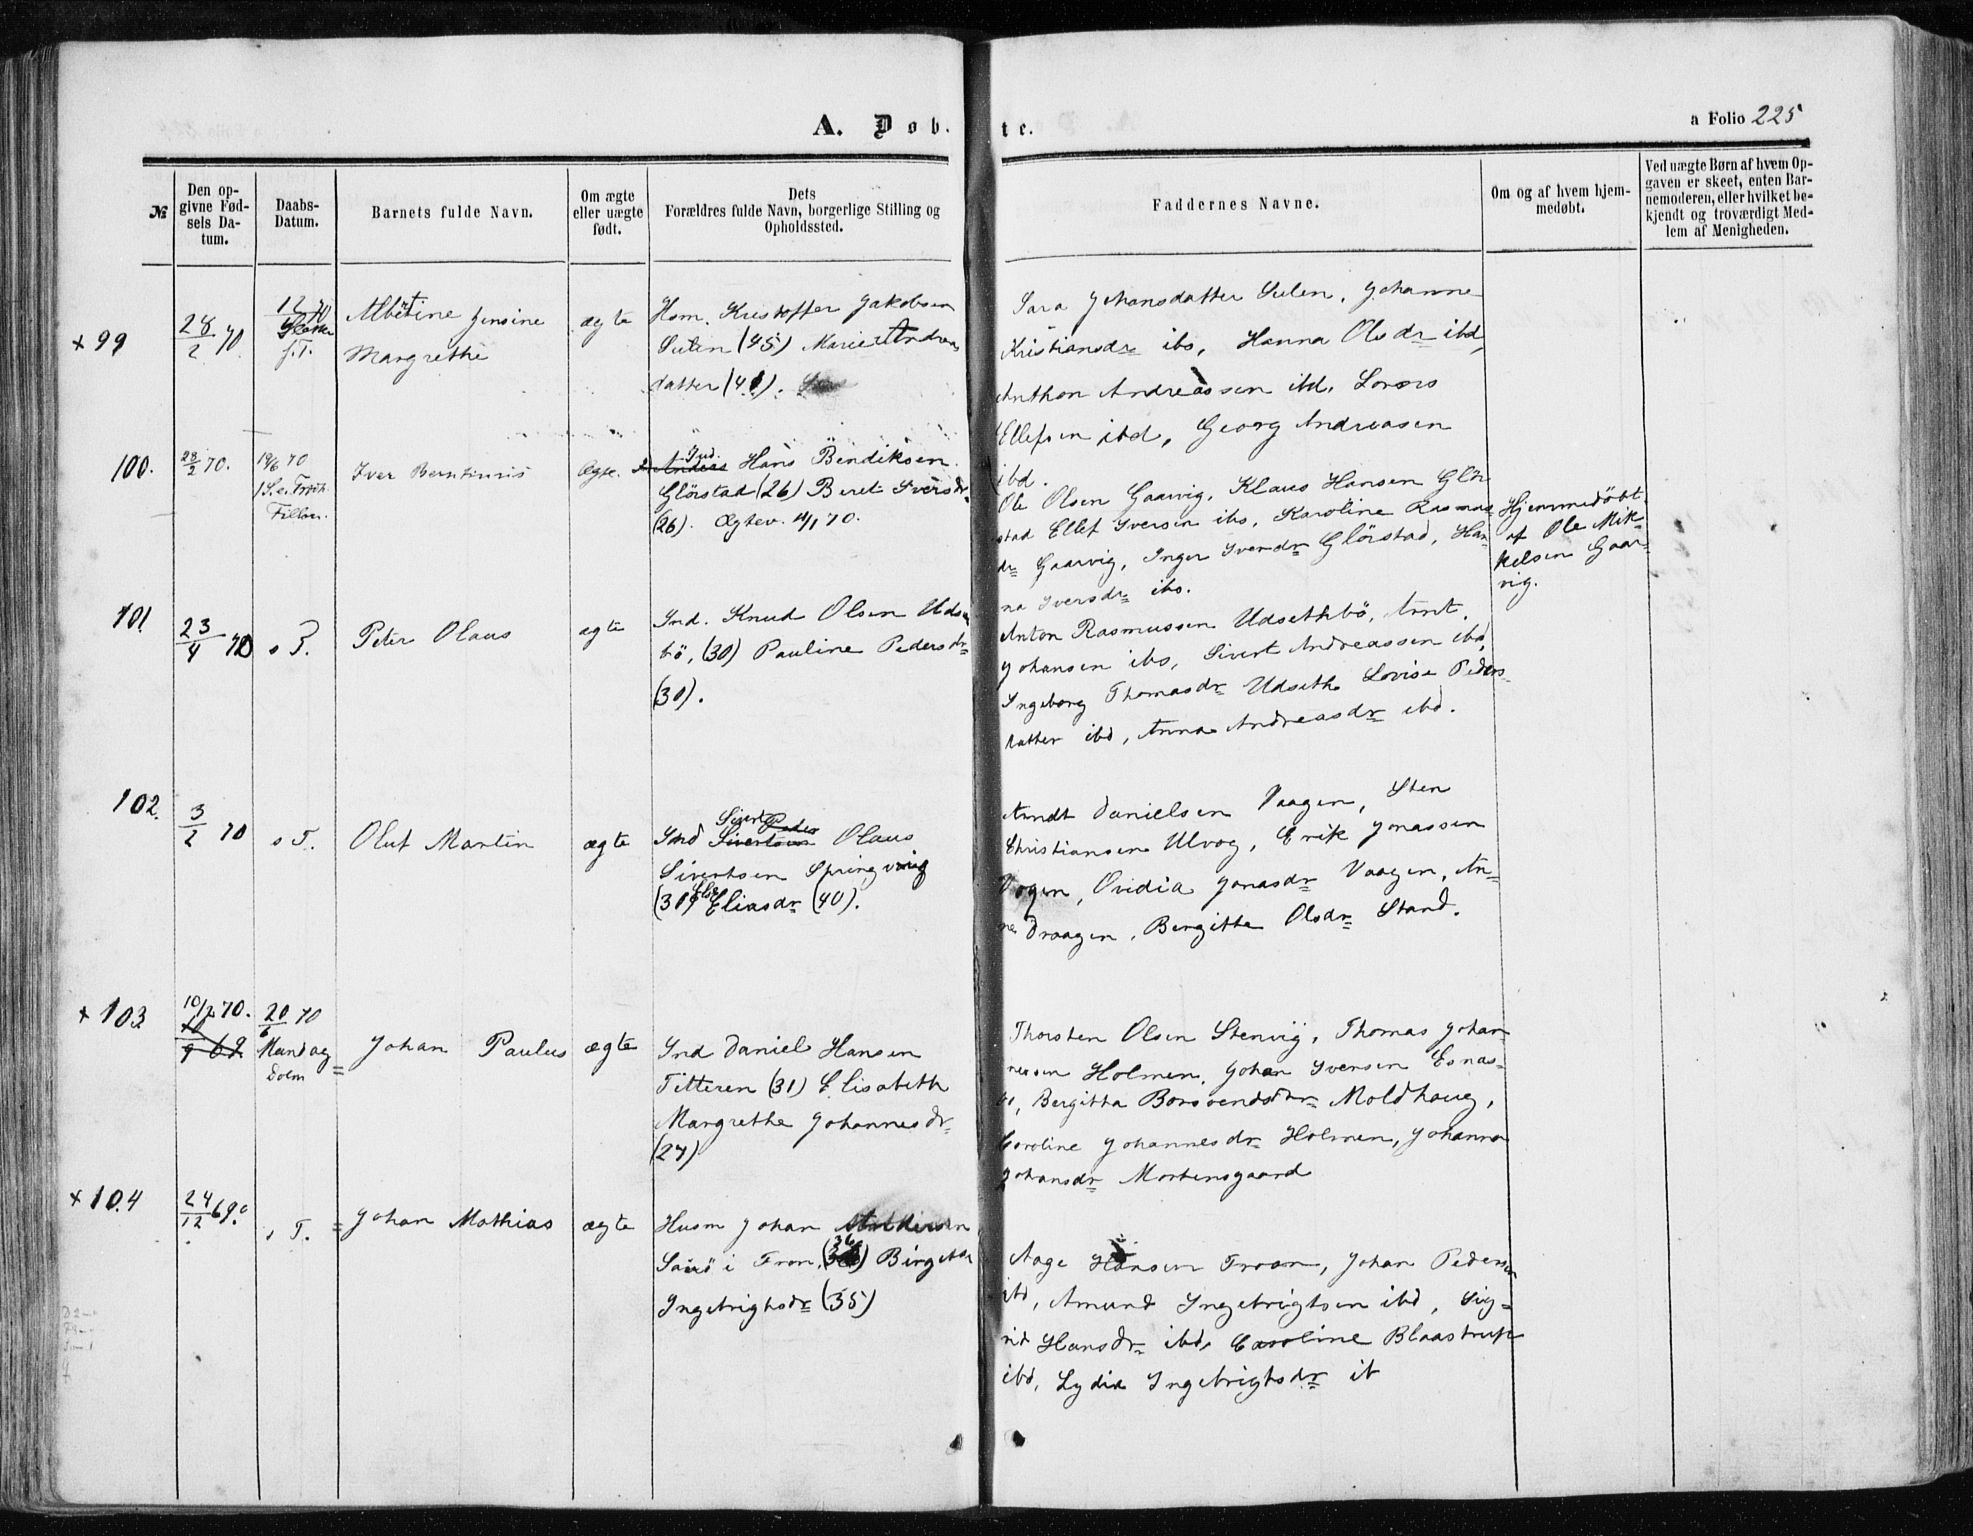 A. Døb-
te.
a Folio 225
№
Den op-
givne Fød-
sels Da-
tum.
Daabs-
Datum.
Barnets fulde Navn.
Om ægte
eller uægte
født.
Dets
Forældres fulde Navn, borgerlige Stilling og
Opholdssted.
Faddernes Navne.
Om og af hvem hjem-
medøbt.
Ved uægte Børn af hvem Op-
gaven er skeet, enten Bar-
nemoderen, eller hvilket be-
kjendt og troværdigt Med-
lem af Menigheden.
x 99
28/2 70
f. T.
Albertine Jensine
Margrethe
ægte
Hsm. Kristoffer Jakobsen
Sulen (45) Marie Andreas
datter (41).
Sara Johansdatter Sulen, Johanne
Kristiansdr ibs, Hanna Olsdr ibd,
Anthon Andreassen ibd. Lorens
Ellefsen ibd, Georg Andreasen
ibd.
100.
28/2 70.
19/6 70
Fillan.
Iver Berntinus
Ægte.
Ind.
Hans Bendiksen
Glörstad (26) Beret Iversdr
(26). Ægtev. 4/1 70.
Ole Olsen Gaarvig, Klaus Hansen Glör
stad Ellef Iversen ibs, Karoline Rasmus
dr Gaarvig, Inger Iversdr Glörstad, Han
na Iversdr ibs.
Hjemmedöbt
af Ole Mik-
kelsen Gaar-
vig.
101.
23/4 70
s T.
Peter Olaus
ægte
Ind. Knud Olsen Uds
bö, (30) Pauline Pedersdr
(30).
Anton Rasmussen Udsethbö, Arnt
Johansen ibs, Sivert Andreassen ibd,
Ingeborg Thomasdr Udseth Lovise Peders-
datter ibd, Anna Andreasdr ibd.
102.
3/2 70
s T.
Oluf Martin
ægte
Sivert Peder
Ind Sivertsen Olaus
Sivertsen Springvig
(31) Eliasdr (40).
Arndt Danielsen Vaagen, Sten
Christiansen Ulvog, Erik Jonassen
Vogen, Ovidia Jonasdr Vaagen, An-
ne Draagen, Bergitte Olsdr Stand.
x 103
10/2 70.
10/9 69
20/6 70
Mandag
Dolm
Johan Paulus
ægte
Ind Daniel Hansen
Titteren (31) Elisabeth
Margrethe Johannesdr
(27)
Thorsten Olsen Stenvig, Thomas Johan
nessen Holmen, Johan Iversen Esnas-
Bergitta Moldhaug,
Caroline Johannesdr Holmen, Johanna
Johansdr Mortensgaard
x 104
24/12 69
s T.
Johan Mathias
ægte
Husm Johan
i Fron, (36) Birgitte
Ingebrigtsdr (35)
Aage Hansen Froan, Johan Pedersen
ibd, Amund Ingebrigtsen ibd, Sig-
rid Hansdr ibd, Caroline Blaastrup
ibd, Lydia Ingebrigtsdr ib